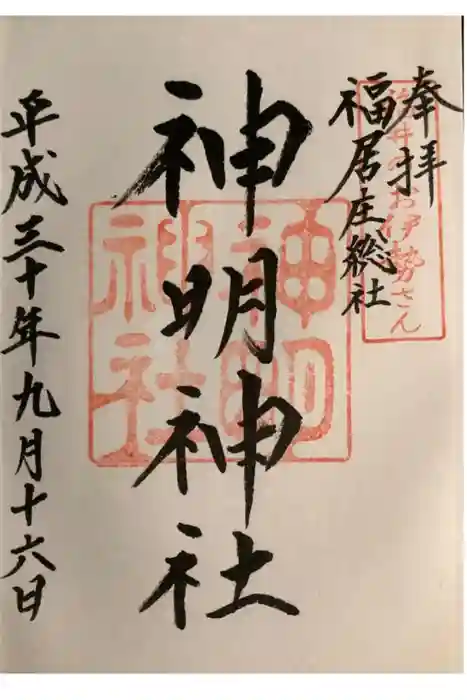 奉拝
福居庄総社
福井のお伊勢さん
神明神社
神明
神社
平成三十年九月十六日